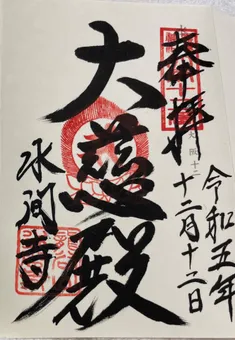 奉拝
令和五年
十二月十二日
大慈殿
水間寺